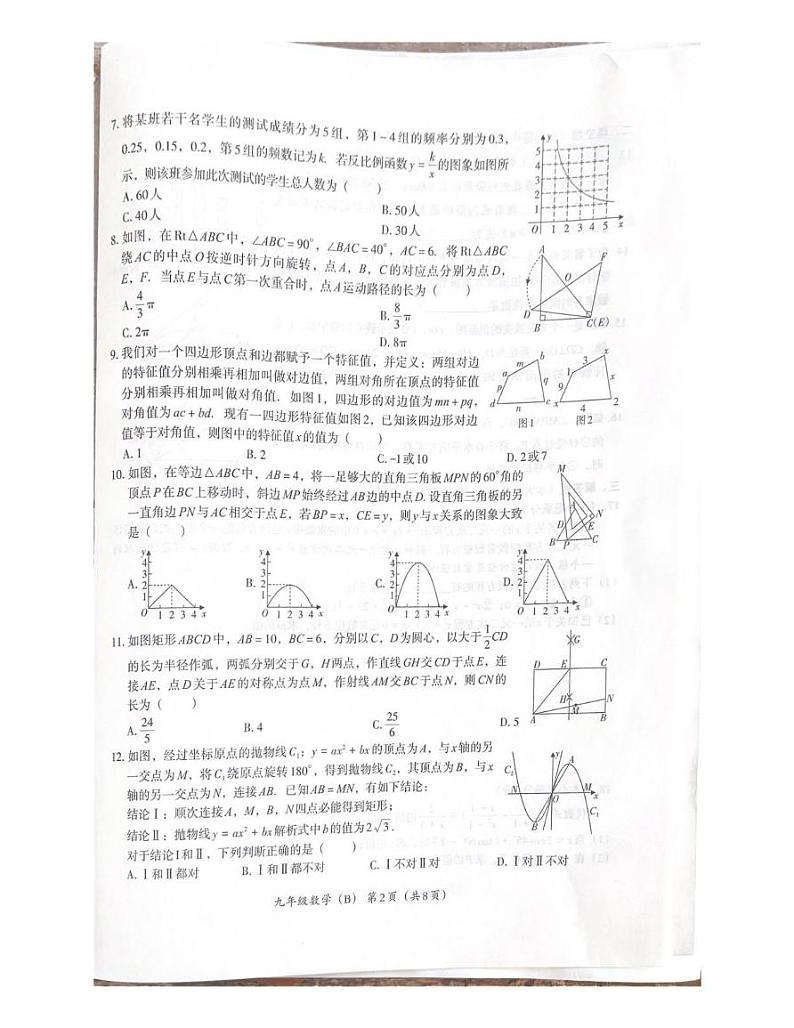 7. 将某班若干名学生的测试成绩分为5组，第1~4组的频率分别为0.3，
0.25，0.15，0.2，第5组的频数记为k. 若反比例函数y = k/x 的图象如图所
示，则该班参加此次测试的学生总人数为（　　）
A. 60人
B. 50人
C. 40人
D. 30人
y
5
4
3
2
1
O 1 2 3 4 5 x
8. 如图，在Rt△ABC中，∠ABC = 90°，∠BAC = 40°，AC = 6. 将Rt△ABC
绕AC的中点O按逆时针方向旋转，点A，B，C的对应点分别为点D，
E，F. 当点E与点C第一次重合时，点A运动路径的长为（　　）
A. 4/3 π
B. 8/3 π
C. 2π
D. 8π
A
F
O
D
B
C(E)
9. 我们对一个四边形顶点和边都赋予一个特征值，并定义：两组对边
的特征值分别相乘再相加叫做对边值，两组对角所在顶点的特征值
分别相乘再相加叫做对角值. 如图1，四边形的对边值为mn + pq，
对角值为ac + bd. 现有一四边形特征值如图2，已知该四边形对边
值等于对角值，则图中的特征值x的值为（　　）
A. 1
B. 2
C. -1或10
D. 2或7
a m b
p q
d n c
图1
1 3 x
9 x
x 4 2
图2
10. 如图，在等边△ABC中，AB = 4，将一足够大的直角三角板MPN的60°角的
顶点P在BC上移动时，斜边MP始终经过AB边的中点D. 设直角三角板的另
一直角边PN与AC相交于点E，若BP = x，CE = y，则y与x关系的图象大致
是（　　）
M
A
D N
E
B P C
A.
y
4
3
2
1
O 1 2 3 4 x
B.
y
4
3
2
1
O 1 2 3 4 x
C.
y
4
3
2
1
O 1 2 3 4 x
D.
y
4
3
2
1
O 1 2 3 4 x
11. 如图矩形ABCD中，AB = 10，BC = 6，分别以C，D为圆心，以大于1/2 CD
的长为半径作弧，两弧分别交于G，H两点，作直线GH交CD于点E，连
接AE，点D关于AE的对称点为点M，作射线AM交BC于点N，则CN的
长为（　　）
A. 24/5
B. 4
C. 25/6
D. 5
G
D E C
H N
M
A B
12. 如图，经过坐标原点的抛物线C₁：y = ax² + bx的顶点为A，与x轴的另
一交点为M，将C₁绕原点旋转180°，得到抛物线C₂，其顶点为B，与x
轴的另一交点为N，连接AB. 已知AB = MN，有如下结论：
结论Ⅰ：顺次连接A，M，B，N四点必能得到矩形；
结论Ⅱ：抛物线y = ax² + bx解析式中b的值为2√3.
对于结论Ⅰ和Ⅱ，下列判断正确的是（　　）
A. Ⅰ和Ⅱ都对
B. Ⅰ和Ⅱ都不对
C. Ⅰ不对Ⅱ对
D. Ⅰ对Ⅱ不对
y
C₂ A
N O M x
B C₁
九年级数学（B） 第2页（共8页）